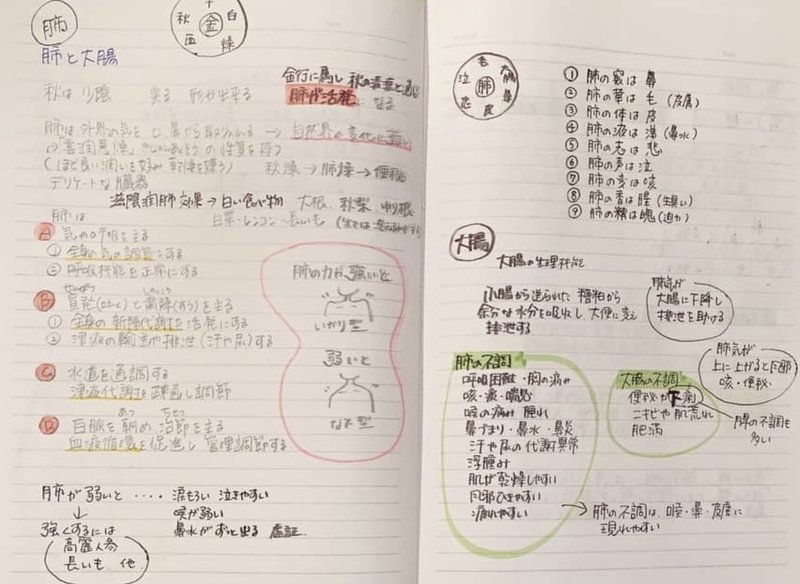 肺
金
白
燥
秋
肺と大腸
金行に属し 秋の
肺が活発になる
秋は 少陰 形が出来る
肺は外界の気を 鼻から取り入れる → 自然界の変化に
を好み 乾燥を嫌う) 秋燥→肺燥→便秘
デリケートな臓器
滋陰潤肺 効果→白い食べ物 大根、秋梨
白菜・レンコン・長いも
肺は
A 気や呼吸を主る
① 全身の気の調節をする
② 呼吸機能を正常にする
B 宣発(はく)と粛降(すう)を主る
① 全身の新陳代謝を活発にする
② 津液の輸送や排泄(汗や尿)する
C 水道を通調する
津液代謝を疎通し調節
D 百脈を朝め 治節を主る
血液循環を促進し 管理調節する
肺の力が、強いと
いかり型
弱いと
なで型
肺が弱いと ・・・・ 涙もろい 泣きやすい
喉が弱い
鼻水がずっと出る 虚証
↓
強くするには
高麗人参
長いも 他
毛
大腸
鼻
皮
悲
泣
肺
① 肺の竅は鼻
② 肺の華は毛(皮膚)
③ 肺の体は皮
④ 肺の液は涕(鼻水)
⑤ 肺の志は悲
⑥ 肺の声は泣
⑦ 肺の変は咳
⑧ 肺の香は腥(生臭い)
⑨ 肺の精は魄(迫力)
大腸
大腸の生理机能
小腸から送られた 糟粕から
余分な水分を吸収し 大便に変え
排泄する
肺気が
大腸に下降し
排泄を助ける
肺気が
上に上がると
咳・便秘
肺の不調
呼吸困難・胸の痛み
咳・痰・喘息
喉の痛み 腫れ
鼻づまり・鼻水・鼻炎
汗や尿の代謝異常
浮腫み
肌が乾燥しやすい
風邪ひきやすい
疲れやすい
大腸の不調
便秘か下痢
ニキビや肌荒れ
肥満
脾の不調も
多い
→ 肺の不調は、喉・鼻・皮膚に
現れやすい